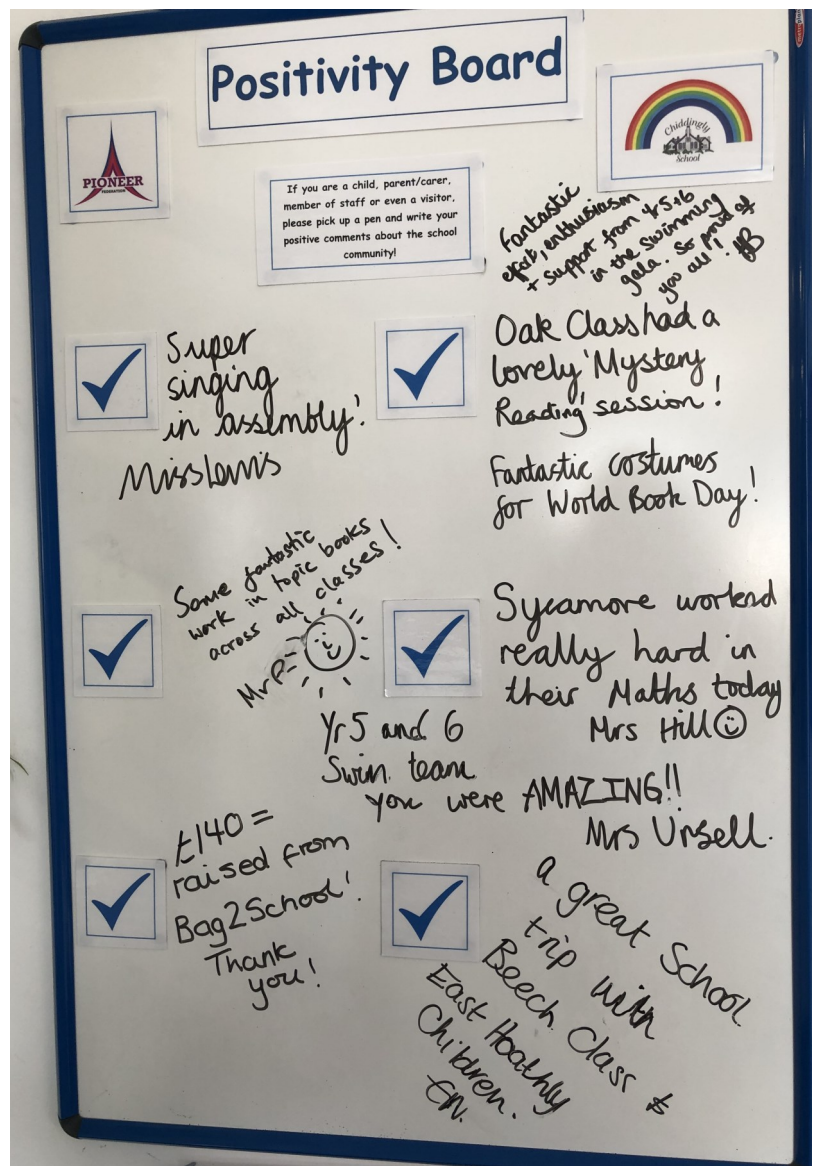 Positivity Board
PIONEER
FEDERATION
Chiddingly
School
If you are a child, parent/carer,
member of staff or even a visitor,
please pick up a pen and write your
positive comments about the school
community!
Fantastic
effort, enthusiasm
+ support from Yr 5+6
in the swimming
gala. So proud of
you all!
Super
singing
in assembly!
Miss Lewis
Oak Class had a
lovely 'Mystery
Reading' session!
Fantastic costumes
for World Book Day!
Some fantastic
work in topic books
across all classes!
Mr P
Sycamore worked
really hard in
their Maths today
Mrs Hill
Yr5 and 6
Swim team
you were AMAZING!!
Mrs Ursell.
£140=
raised from
Bag2School!
Thank
you!
a great School
trip with
Beech Class &
East Hoathly
Children.